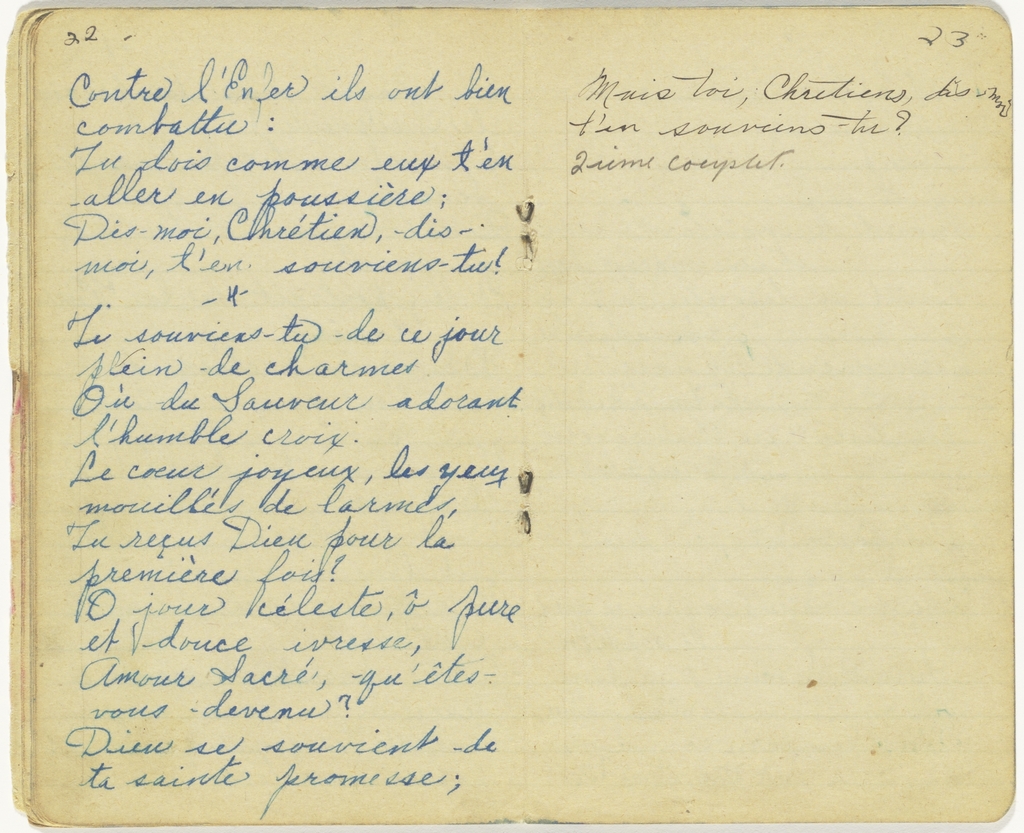 22
Contre l'Enfer ils ont bien
combattu :
Tu dois comme eux t'en
aller en poussière;
Dis-moi, Chrétien, -dis-
moi, t'en souviens-tu!
-4-
Te souviens-tu -de ce jour
plein -de charmes
Où du Sauveur adorant
l'humble croix.
Le coeur joyeux, les yeux
mouillés de larmes,
Tu reçus Dieu pour la
première fois?
O jour céleste, ô pure
et douce ivresse,
Amour Sacré, -qu'êtes-
vous -devenu?
Dieu se souvient -de
ta sainte promesse;
23
Mais toi, Chrétiens, dis-moi
t'en souviens-tu?
2ième couplet.